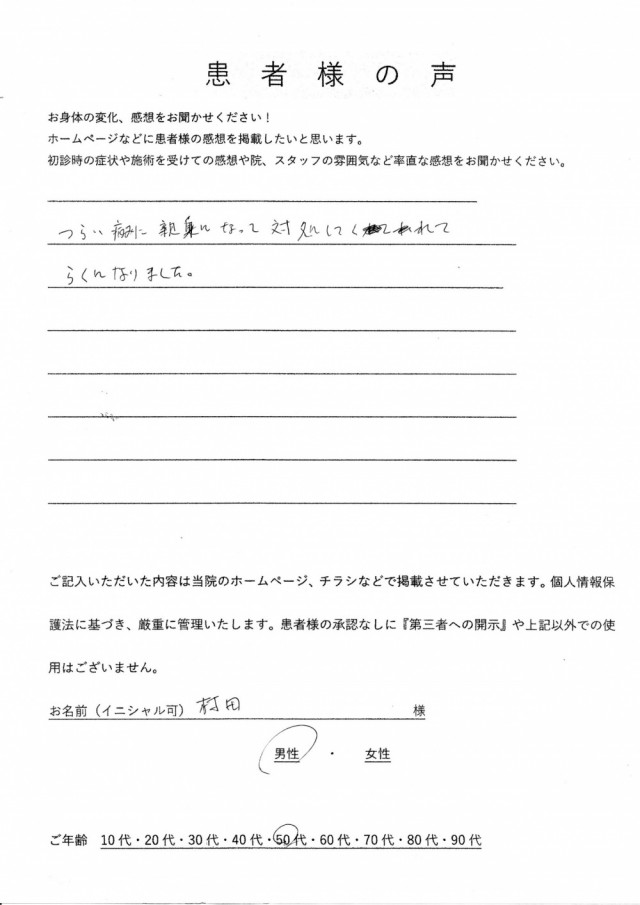 患者様の声
お身体の変化、感想をお聞かせください！
ホームページなどに患者様の感想を掲載したいと思います。
初診時の症状や施術を受けての感想や院、スタッフの雰囲気など率直な感想をお聞かせください。
つらい痛みに親身になって対処してくれて
らくになりました。
ご記入いただいた内容は当院のホームページ、チラシなどで掲載させていただきます。個人情報保
護法に基づき、厳重に管理いたします。患者様の承認なしに『第三者への開示』や上記以外での使
用はございません。
お名前（イニシャル可） 村田 様
男性 ・ 女性
ご年齢 10代・20代・30代・40代・50代・60代・70代・80代・90代